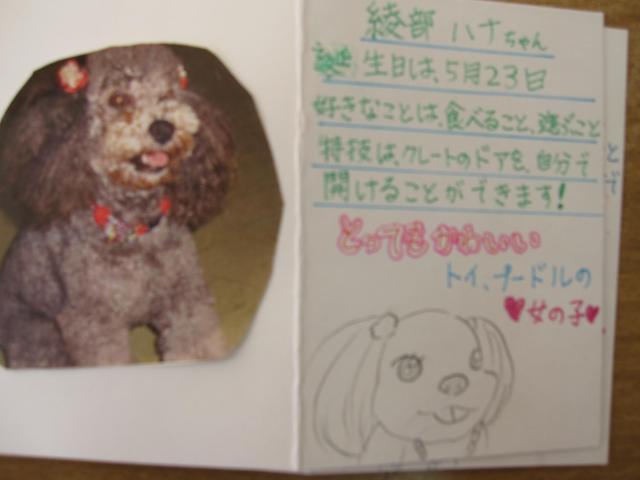 綾部 ハナちゃん
誕生日は、5月23日
好きなことは、食べること、遊ぶこと
特技は、クレートのドアを、自分で
開けることができます!
とってもかわいい
トイ、プードルの
♥女の子♥